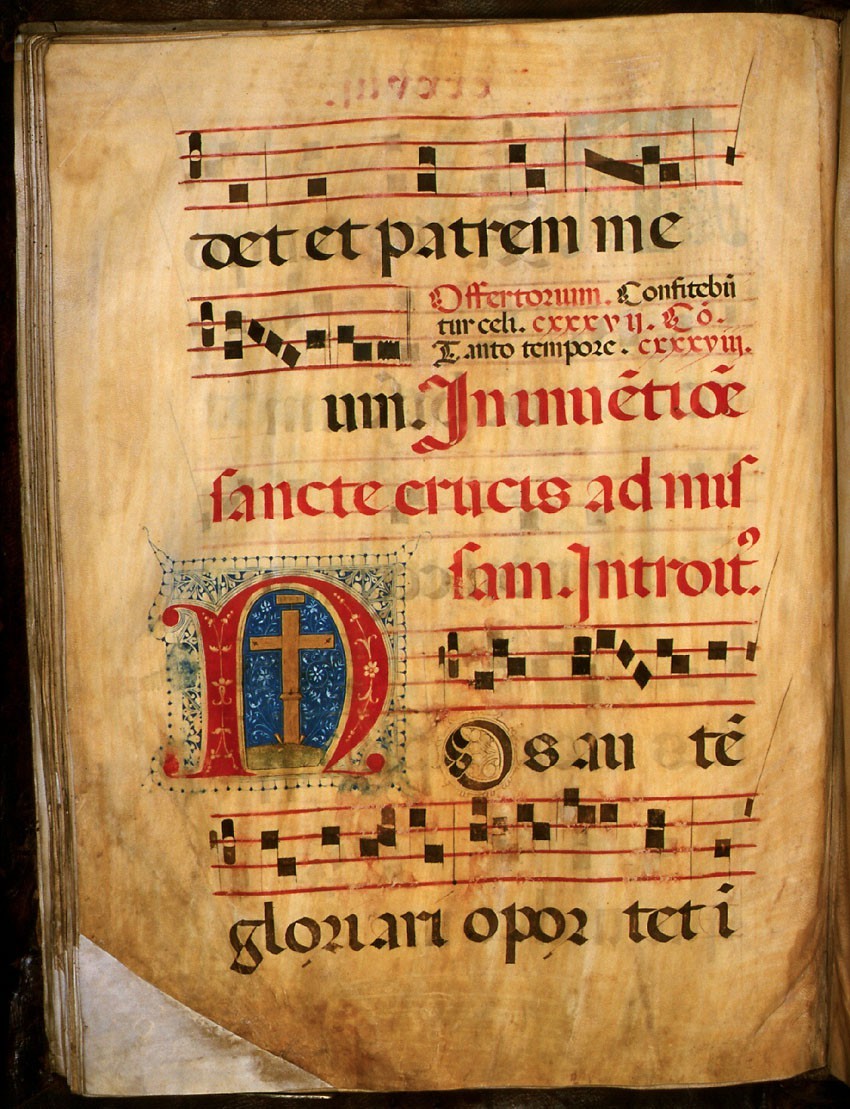 det et patrem me
Offertorium. Confitebũ
tur celi. cxxxvij. Cõ.
Tanto tempore. cxxxviij.
um. In inuẽtiõe
sancte crucis ad mis
sam. Introit᾽.
NOs au tẽ
gloriari opor tet i